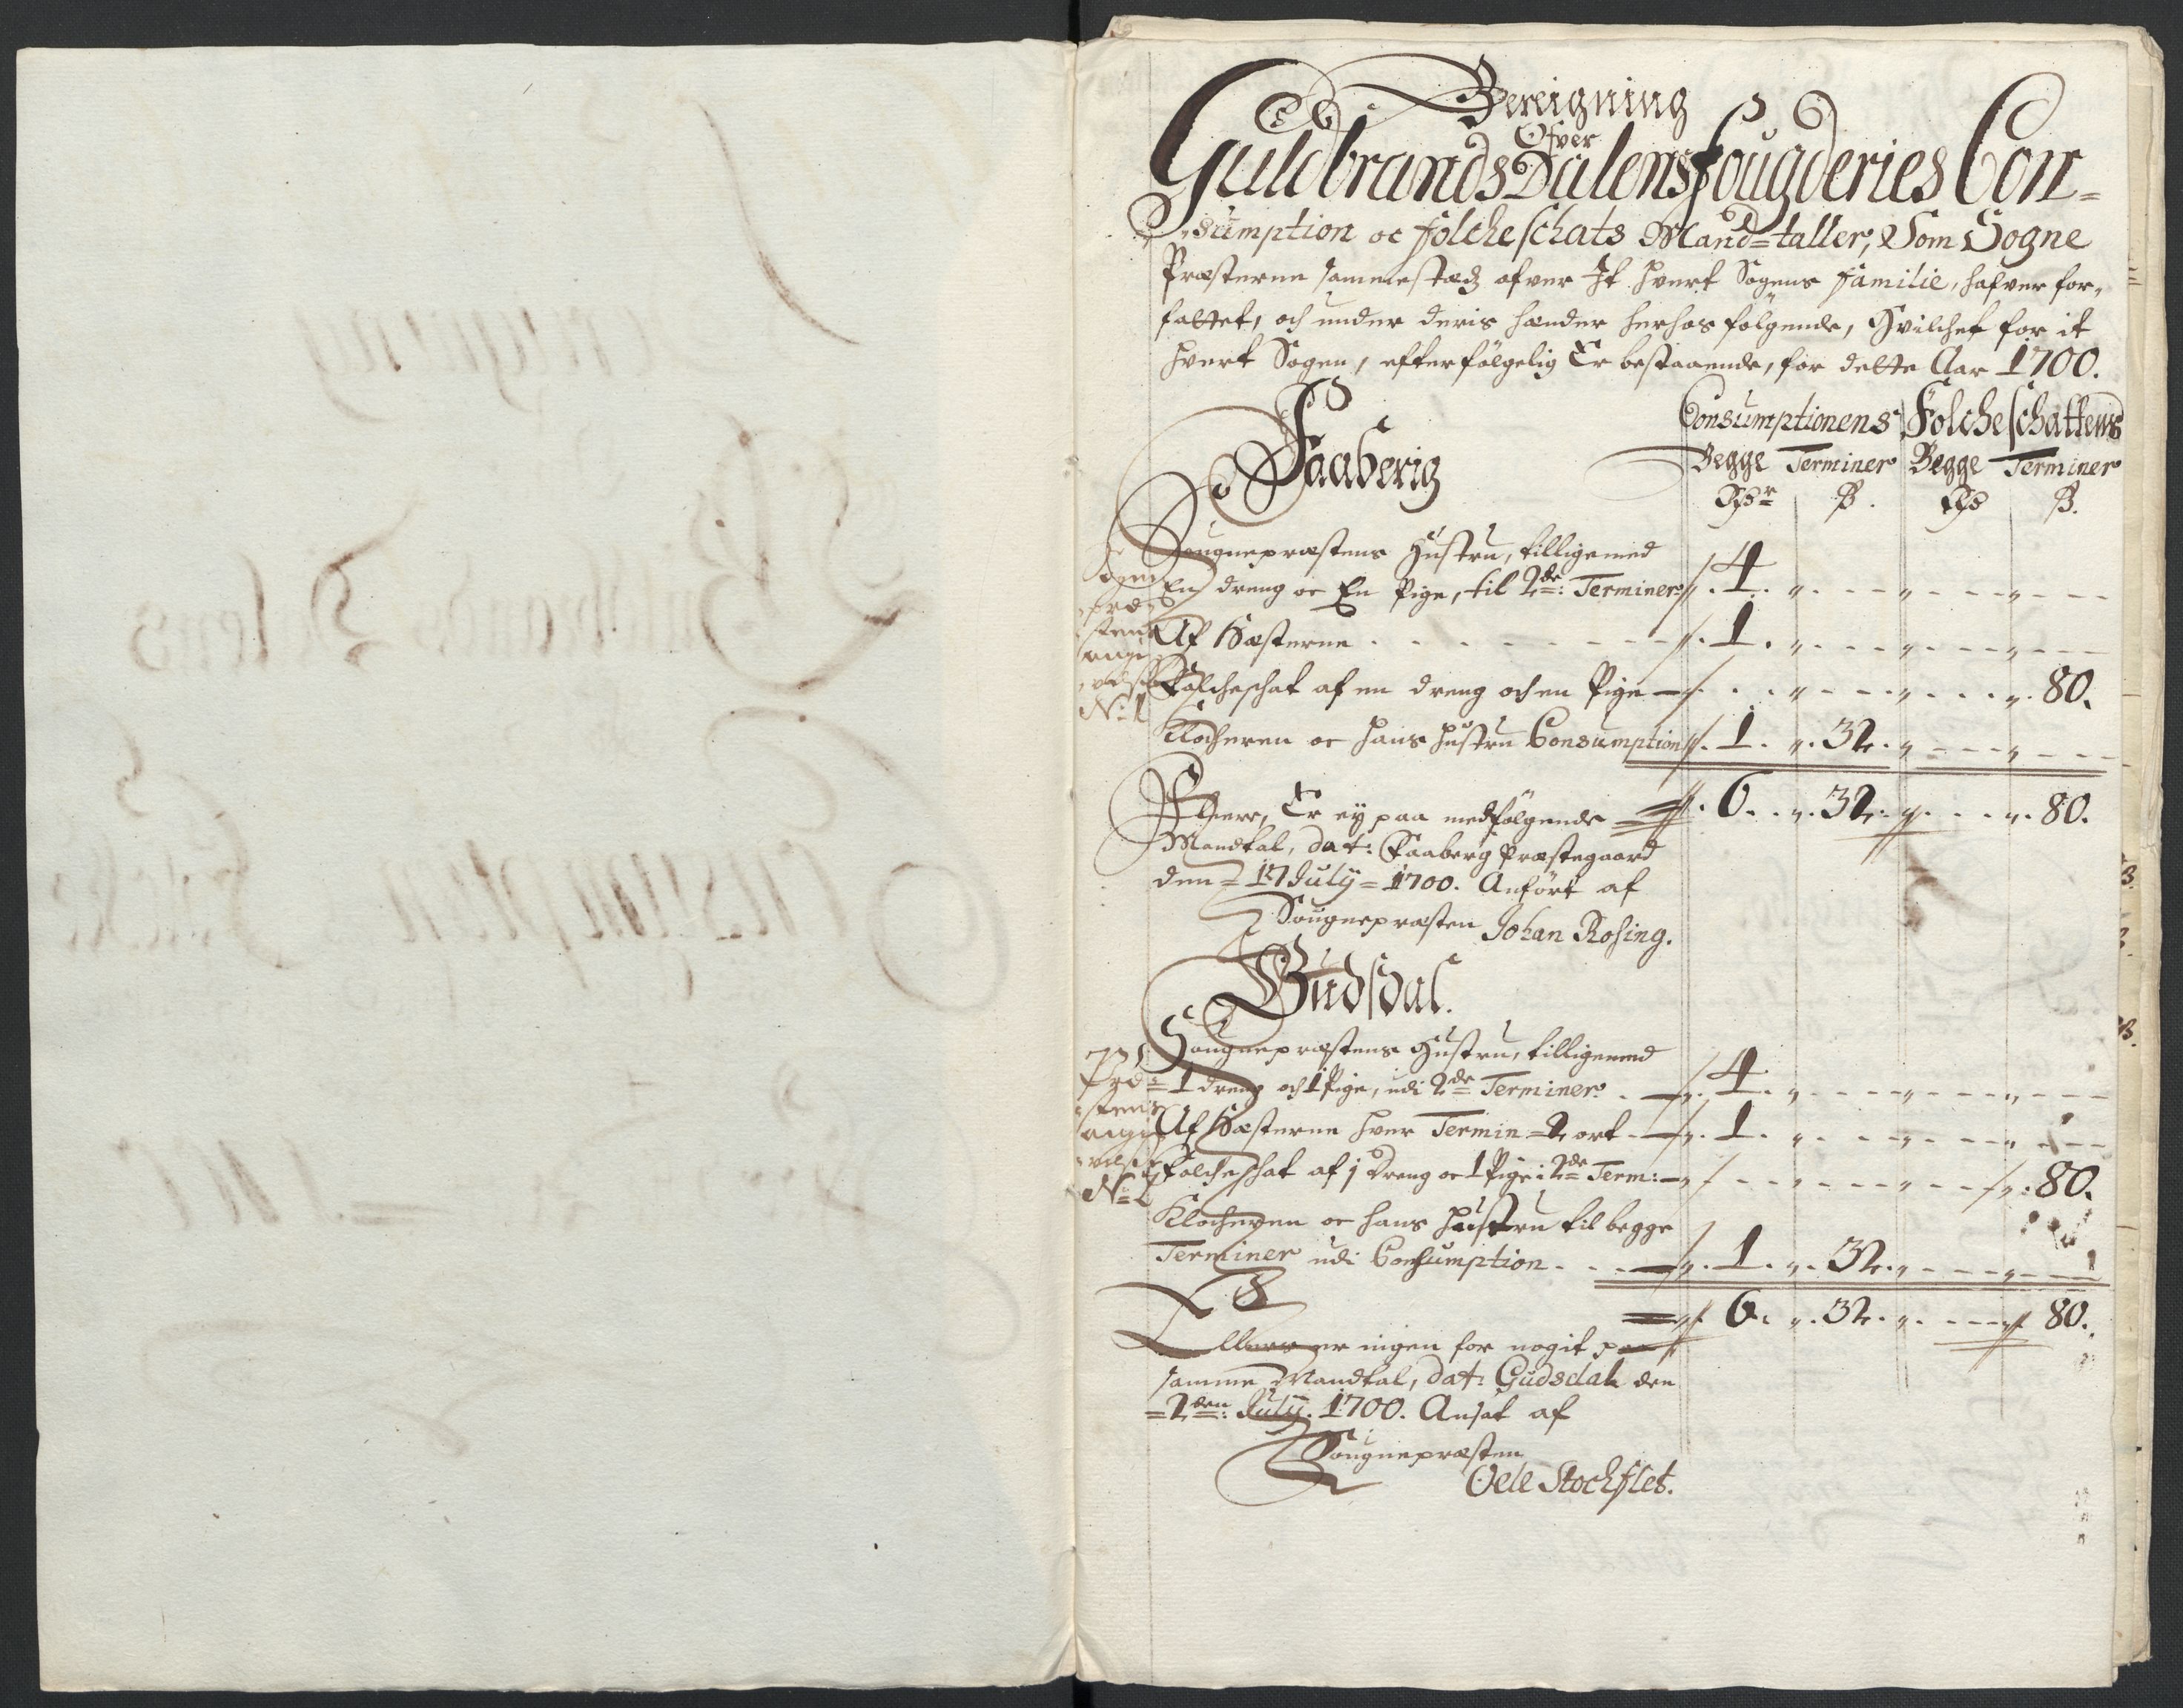 Bereigning
Ofver
Guldbrands Dalens fougderies Con-
sumption oc folcheschats Mand-taller, Som Sogne
Præsterne sammestædz ofver It hvert Sogens familie, hafver for-
fattet, och under deris hænder herhos følgende, Hvilchet for it
hvert Sogen, efterfølgelig Er bestaaende, for dette Aar 1700.
Consumptionens Folcheschattens
Faaberig
Begge Terminer Begge Terminer
Rdr ß. Rd ß.
Sougnepræstens Hustru, tilligemed
En dreng oc En Pige, til 2de: Terminer 4
Af Hæsterne 1
Folcheschat af en dreng och en Pige 80.
No: 1
Klocheren oc hans hustru Consumption 1. 32.
Fleere, Er ey paa medfølgende 6. 32. 80.
Mandtal, dat: Faaberg Præstegaard
den 17 July 1700. Anført af
Sougnepræsten Johan Rosing.
Gudsdal.
Sougnepræstens Hustru, tilligemed
1 dreng och 1 Pige, udi 2de Terminer 4
Af Hæsterne hver Termin 2 ort 1.
Folcheschat af 1 Dreng oc 1 Pige i 2de Term: 80.
No: 2
Klocheren oc hans hustru til begge
Terminer udi Consumption 1. 32.
6. 32. 80.
Ellers er ingen for nogit paa
samme Mandtal, dat: Gudsdal den
2den: July. 1700. Ansat af
Sougnepræsten
Oele Stockflet.